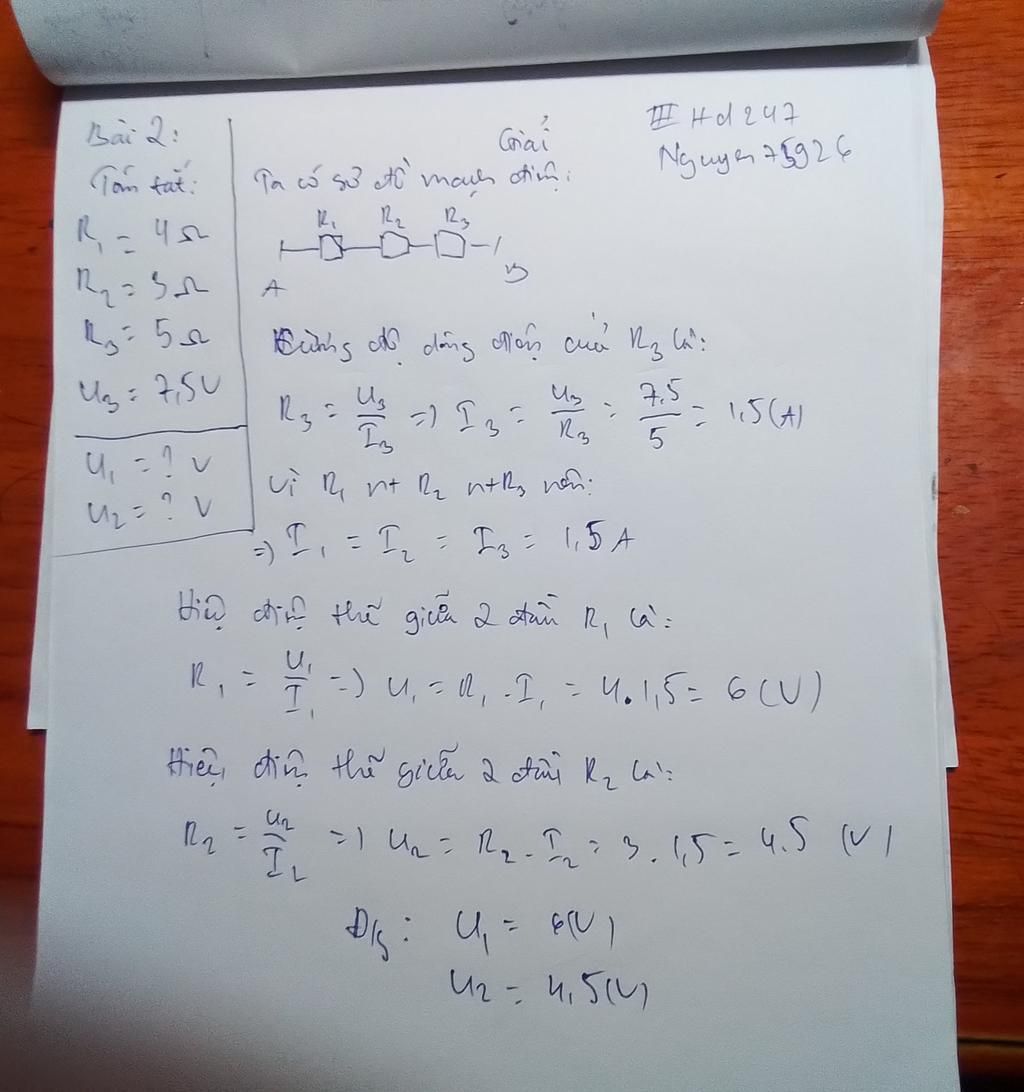 Bài 2:
Tóm tắt:
R₁ = 4Ω
R₂ = 3Ω
R₃ = 5Ω
U₃ = 7,5V
U₁ = ? V
U₂ = ? V
Giải
Hd247
Nguyen75926
Ta có sơ đồ mạch điện:
R₁ R₂ R₃
A B
Cường độ dòng điện của R₃ là:
R₃ = U₃/I₃ => I₃ = U₃/R₃ = 7,5/5 = 1,5(A)
Vì R₁ nt R₂ nt R₃ nên:
=> I₁ = I₂ = I₃ = 1,5A
Hiệu điện thế giữa 2 đầu R₁ là:
R₁ = U₁/I₁ => U₁ = R₁ . I₁ = 4.1,5 = 6 (V)
Hiệu điện thế giữa 2 đầu R₂ là:
R₂ = U₂/I₂ => U₂ = R₂ . I₂ = 3.1,5 = 4.5 (V)
Đ/s: U₁ = 6(V)
U₂ = 4,5(V)